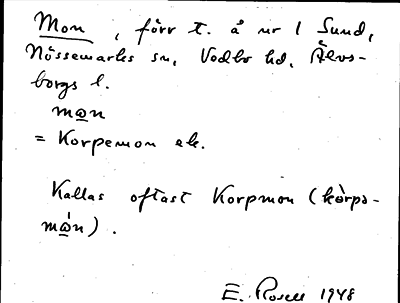 Mon, förr t. å nr 1 Sund,
Nössemarks sn, Vedbo hd, Älvs-
borgs l.
mo̲n
= Korpemon ek.
Kallas oftast Korpmon (kòrps-
mo̲n).
E. Rosell 1948